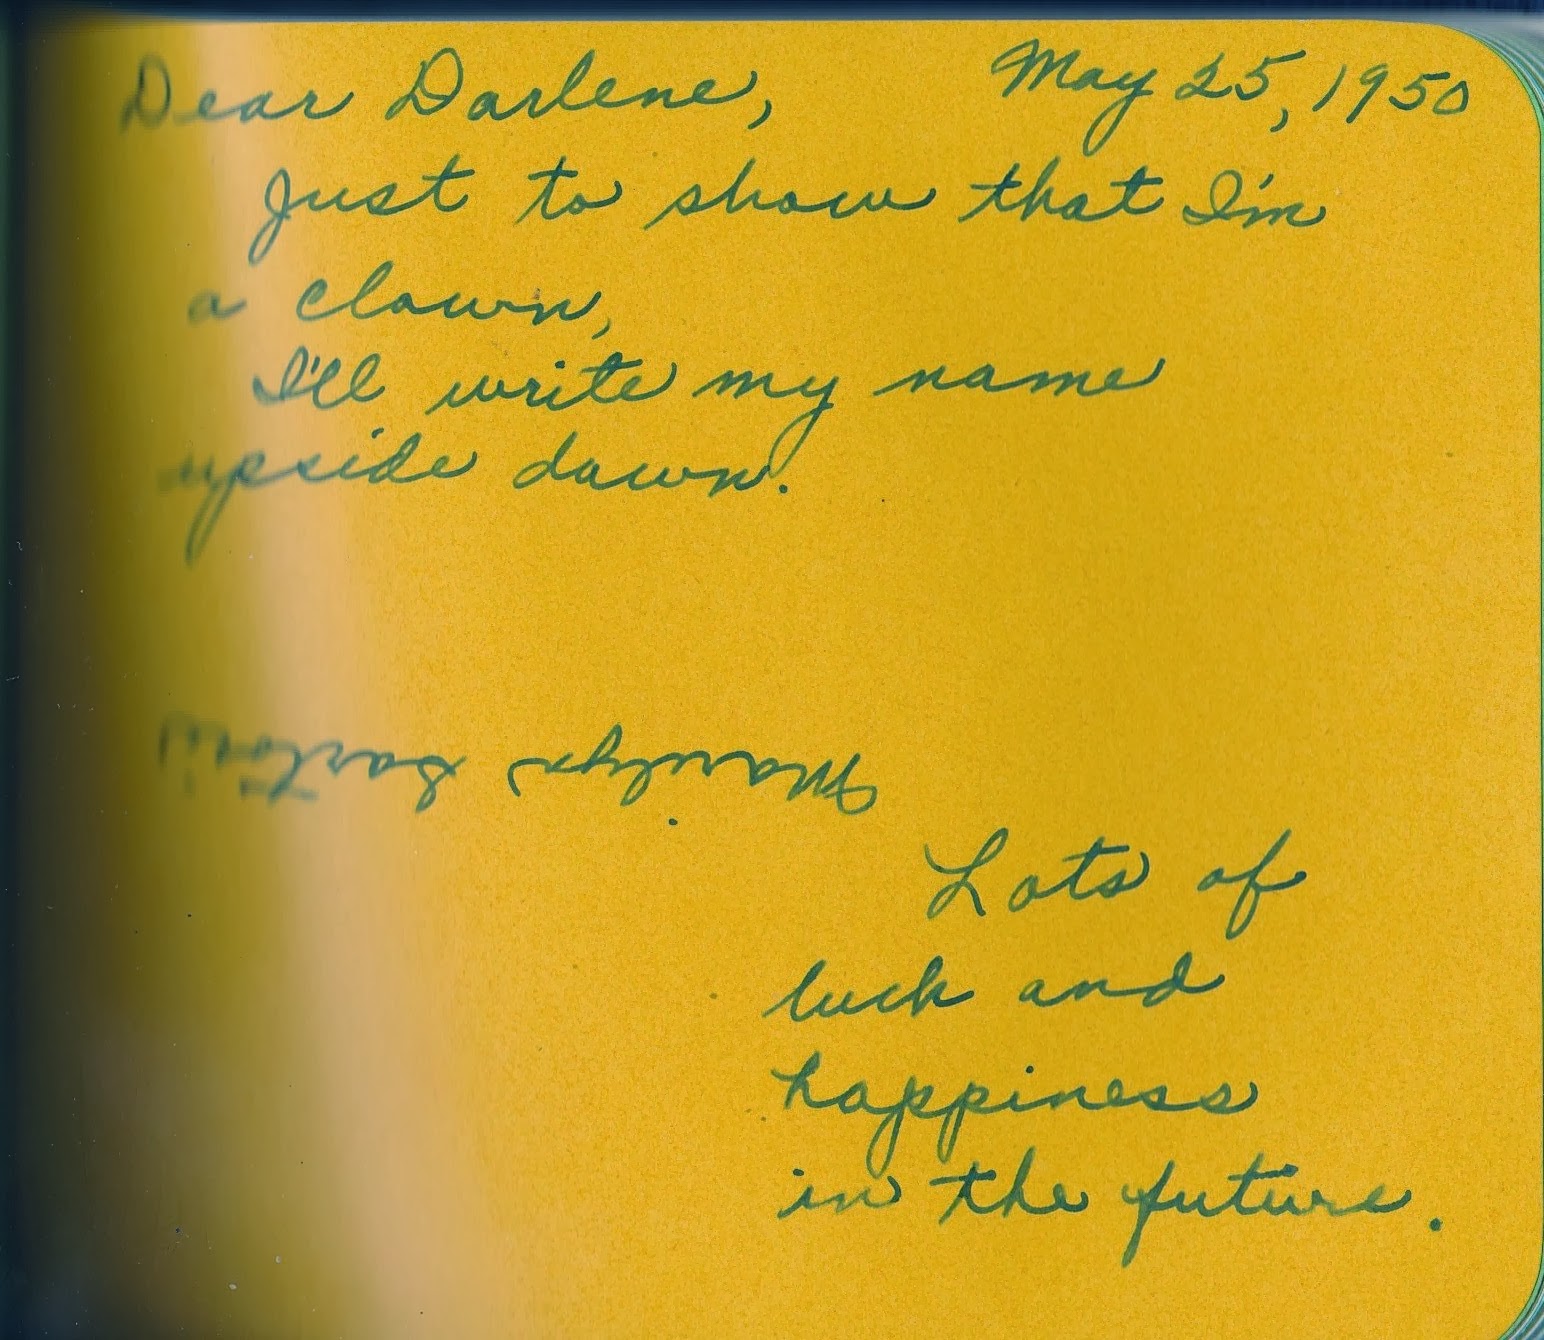 Dear Darlene, May 25, 1950
Just to show that I'm
a clown,
I'll write my name
upside down.
Lots of
luck and
happiness
in the future.